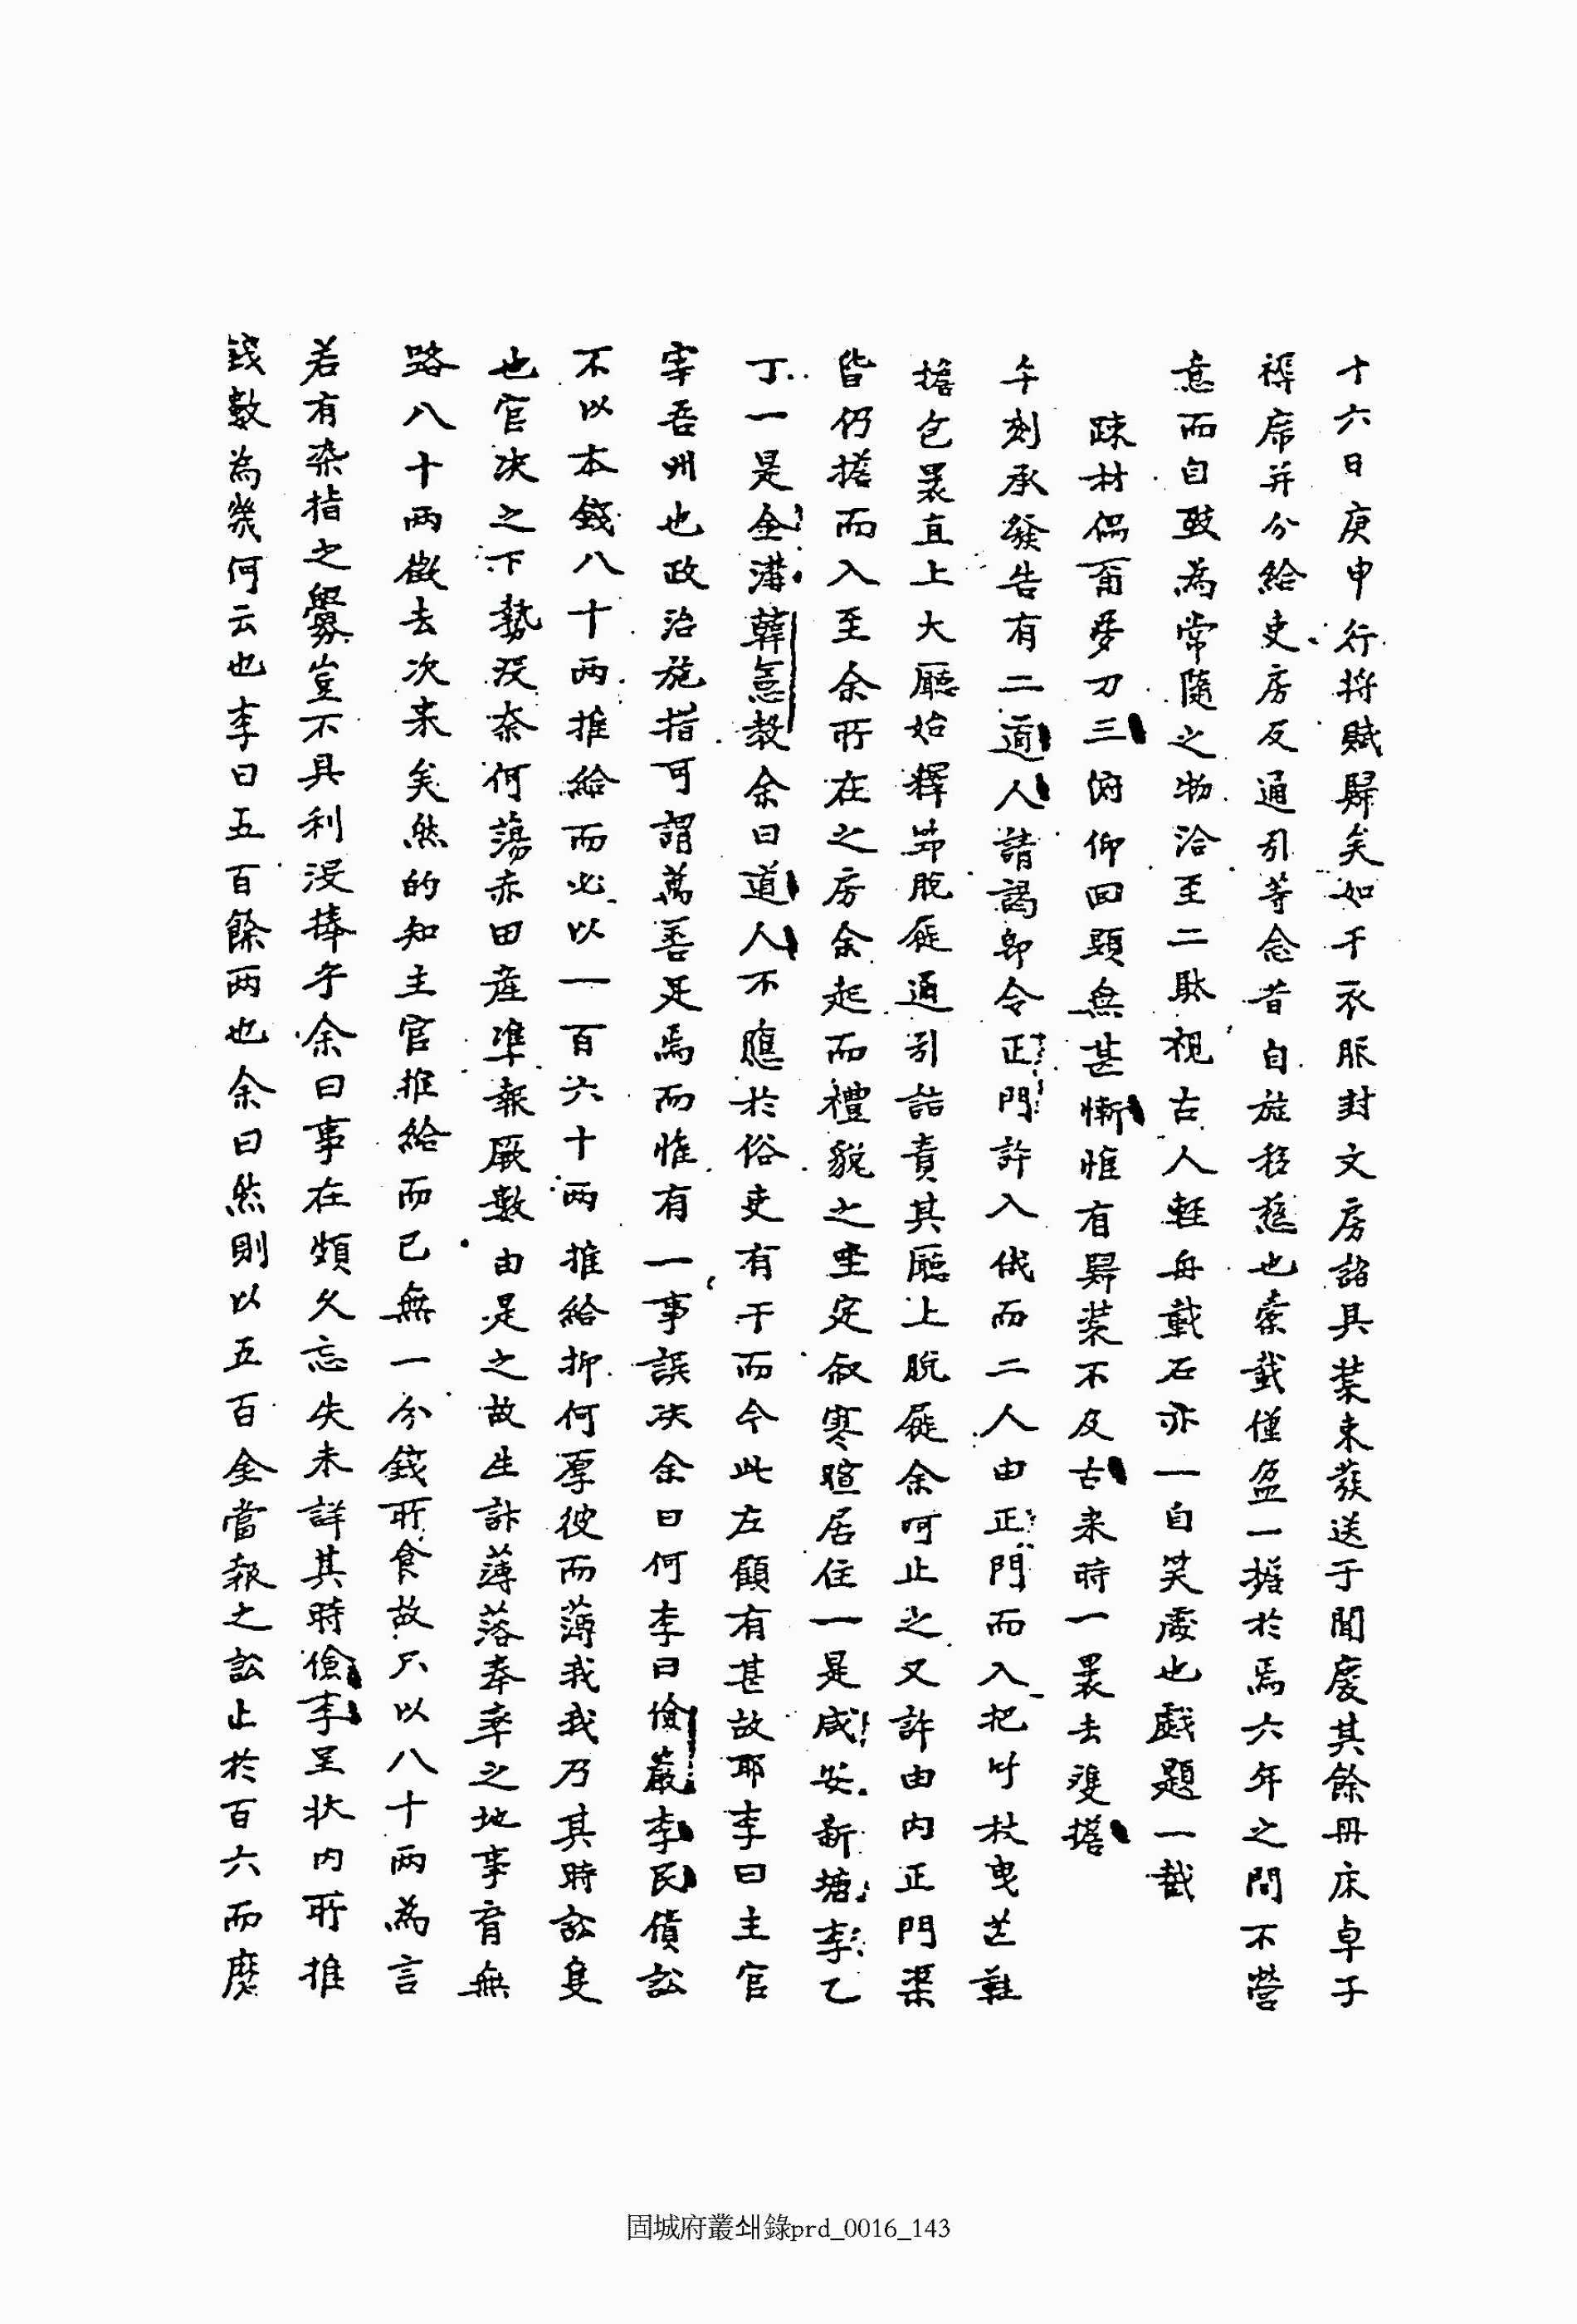 十六日庚申行將賦歸矣如干衣服封文房諸具裝束蔟送于聞慶其餘冊床卓子
褥席并分給吏房及通引等念昔自旌移慈也橐載僅盈一擔於焉六年之間不營
意而自致為常隨之物洽至二駄視古人輕舟載石亦一自笑處也戲題一截
踈材偶甭夢刀三俯仰回頭無甚慚惟有歸裝不及古来時一褁去雙擔
午刻承發告有二逌人請謁卽令正門許入俄而二人由正門而入把竹杖曳芒鞋
擔包褁直上大廳始釋笻脫屣通引詰責其廳上脫屣余呵止之又許由內正門渠
皆仍擔而入至余所在之房余起而禮貌之坐定叙寒暄居住一是咸安新塘李乙
丁一是金溝韓悳教余曰道人不應於俗吏有干而今此左顧有甚故耶李曰主官
宰吾州也政治施措可謂萬善足焉而惟有一事誤决余曰何李曰儉巖李民債訟
不以本錢八十两推給而必以一百六十两推給抑何厚彼而薄我我乃其時訟隻
也官决之下勢没奈何蕩赤田產準報厥數由是之故生計薄落奉率之地事育無
路八十两徵去次来矣然的知主官推給而已無一分錢所食故只以八十两為言
若有染指之釁豈不具利没捧乎余曰事在頗久忘失未詳其時儉李呈狀内所推
錢數為幾何云也李曰五百餘两也余曰然則以五百金當報之訟止於百六而歴